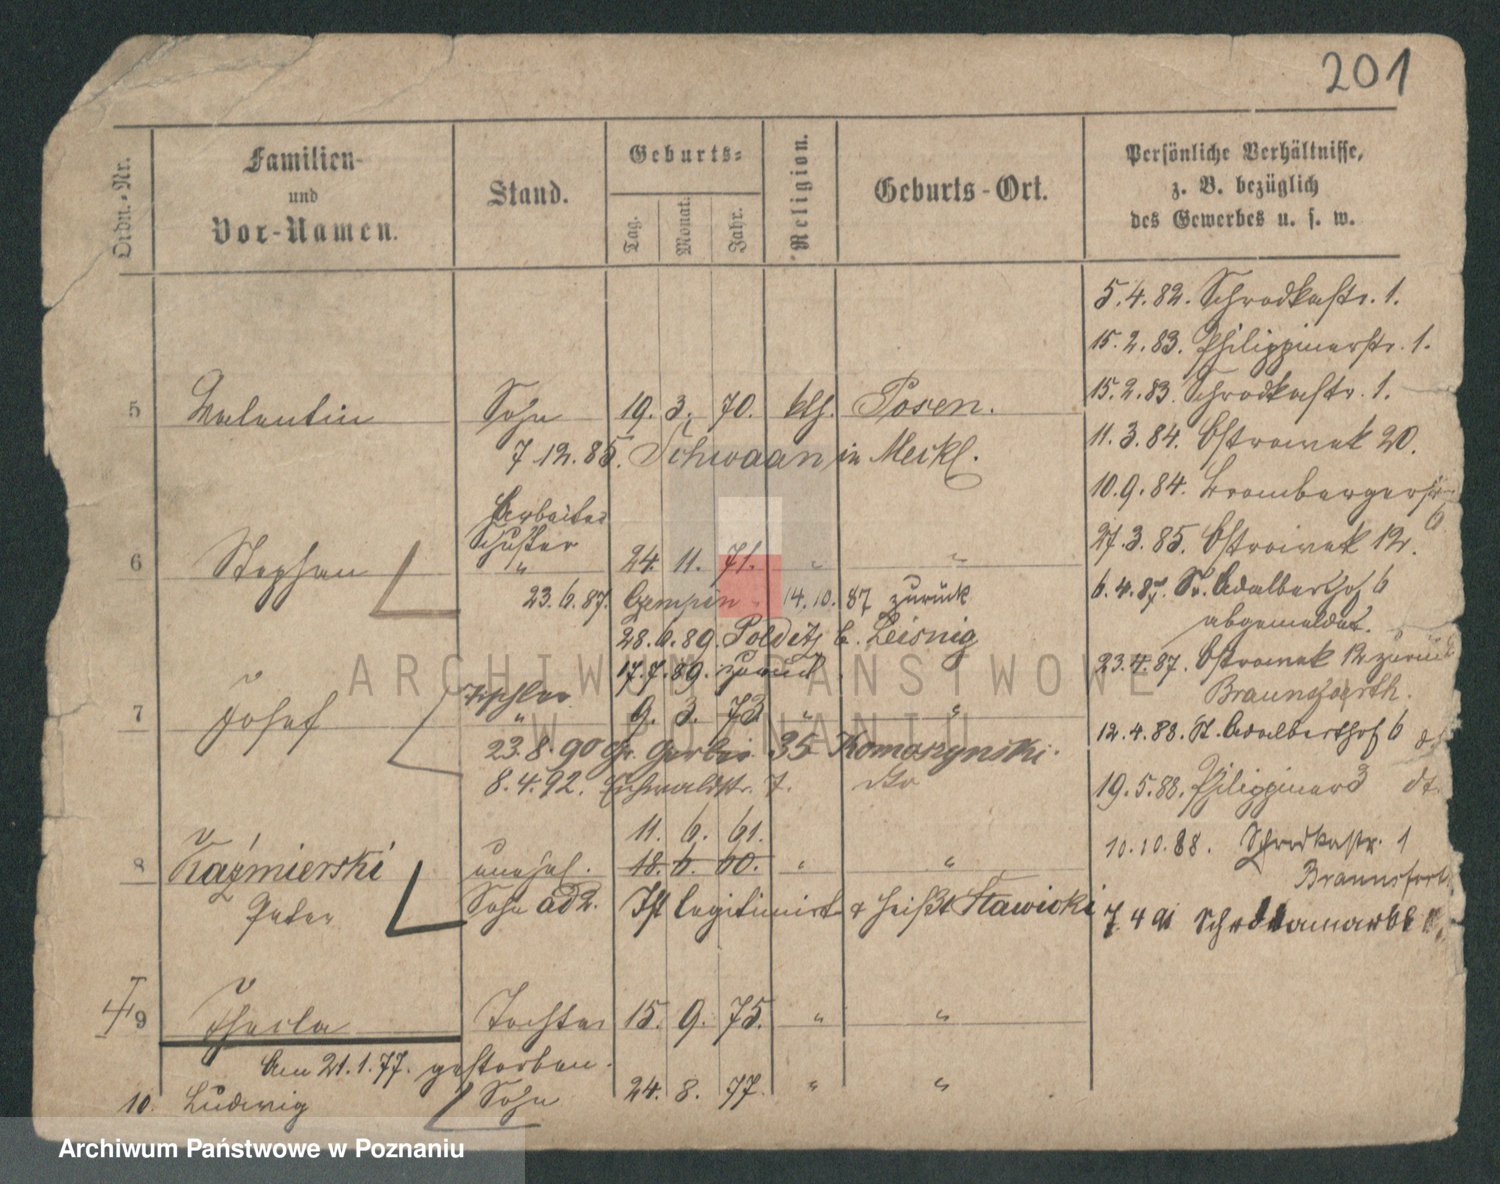 201
Ordn.-Nr.
Familien-
und
Vor-Namen.
Stand.
Geburts-
Tag.
Monat.
Jahr.
Religion.
Geburts-Ort.
Persönliche Verhältnisse,
z. B. bezüglich
des Gewerbes u. s. w.
5.4.82. Schrodkastr. 1.
15.2.83. Philippinerstr. 1.
15.2.83. Schrodkastr. 1.
5 Valentin Sohn 19. 3. 70. kth. Posen.
11.3.84. Ostrowek 20.
7.12.85. Schwaan in Meckl.
10.9.84. Brombergerstr
6
Arbeiter
Schuster
27.3.85. Ostrowek 12.
6 Stephan " 24. 11. 71. " "
6.4.87. St. Adalberthof 6
abgemeldet.
23.6.87. 14.10.87 zurück
28.6.89. Polditz b. Leisnig
17.7.89. zurück
23.4.87. Ostrowek 12 zurück
Tischler
7 Josef " 9. 3. 73 " "
12.4.88. St. Adalberthof 6
23.8.90 Gr. Gerber 35 Komoszynski.
8.4.92. 7. dto
19.5.88. Philippiner 3 dt.
11. 6. 61.
10.10.88. Schrodkastr. 1
8 Kaźmierski unehel. 18. 6. 60. " "
Peter Sohn ad 2. Ist legitimirt & heißt Stawicki
7.4.91 Schrodkamarkt
9 Thecla Tochter 15. 9. 75. " "
Am 21.1.77. gestorben.
10. Ludwig Sohn 24. 8. 77. " "
ARCHIWUM PAŃSTWOWE
W POZNANIU
Archiwum Państwowe w Poznaniu